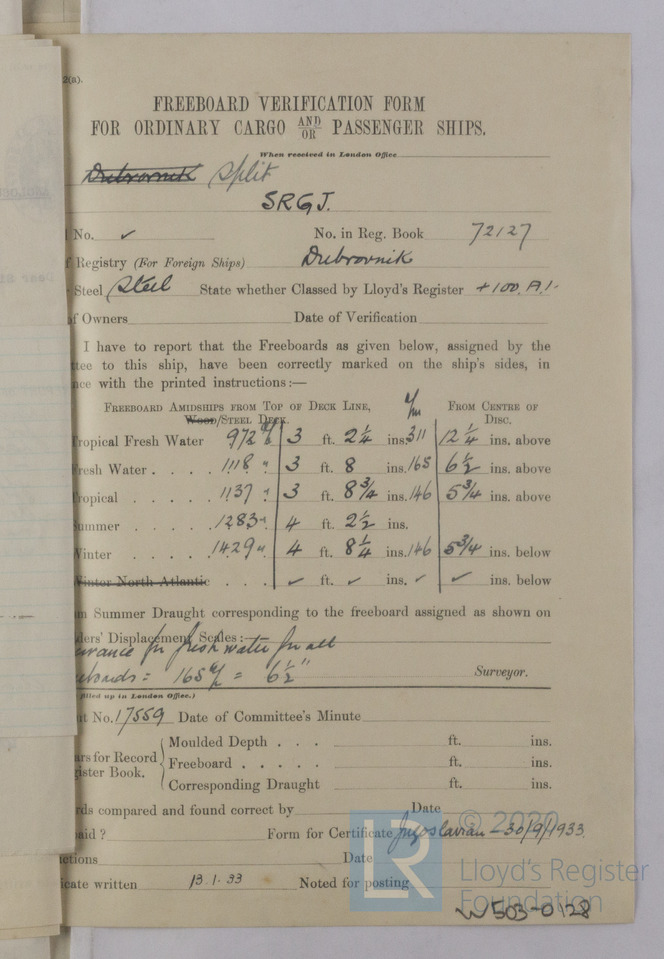 2(a).
FREEBOARD VERIFICATION FORM
FOR ORDINARY CARGO AND/OR PASSENGER SHIPS.
When received in London Office
Dubrovnik Split
SRGJ.
No. ✓ No. in Reg. Book 72127
f Registry (For Foreign Ships) Dubrovnik
Steel Steel State whether Classed by Lloyd's Register +100.A.1.
of Owners Date of Verification
I have to report that the Freeboards as given below, assigned by the
ttee to this ship, have been correctly marked on the ship's sides, in
nce with the printed instructions:—
Freeboard Amidships from Top of Deck Line, m/m From Centre of
Wood/Steel Deck. Disc.
Tropical Fresh Water 972 m/m 3 ft. 2 1/4 ins. 311 12 1/4 ins. above
Fresh Water . . . . 1118 " 3 ft. 8 ins. 165 6 1/2 ins. above
Tropical . . . . . 1137 " 3 ft. 8 3/4 ins. 146 5 3/4 ins. above
Summer . . . . . 1283 " 4 ft. 2 1/2 ins.
Winter . . . . . 1429 " 4 ft. 8 1/4 ins. 146 5 3/4 ins. below
Winter North Atlantic . . . ✓ ft. ✓ ins. ✓ ✓ ins. below
m Summer Draught corresponding to the freeboard assigned as shown on
ders' Displacement Scales:—
owance for fresh water for all
eboards = 165 m/m = 6 1/2" Surveyor.
filled up in London Office.)
t No. 17559 Date of Committee's Minute
Moulded Depth . . . ft. ins.
ars for Record
Freeboard . . . . . ft. ins.
gister Book.
Corresponding Draught ft. ins.
rds compared and found correct by Date
paid ? Form for Certificate Jugoslavian - 30/9/1933.
ctions Date
icate written 13.1.33 Noted for posting
LR © 2020
Lloyd's Register
Foundation
W503-0128